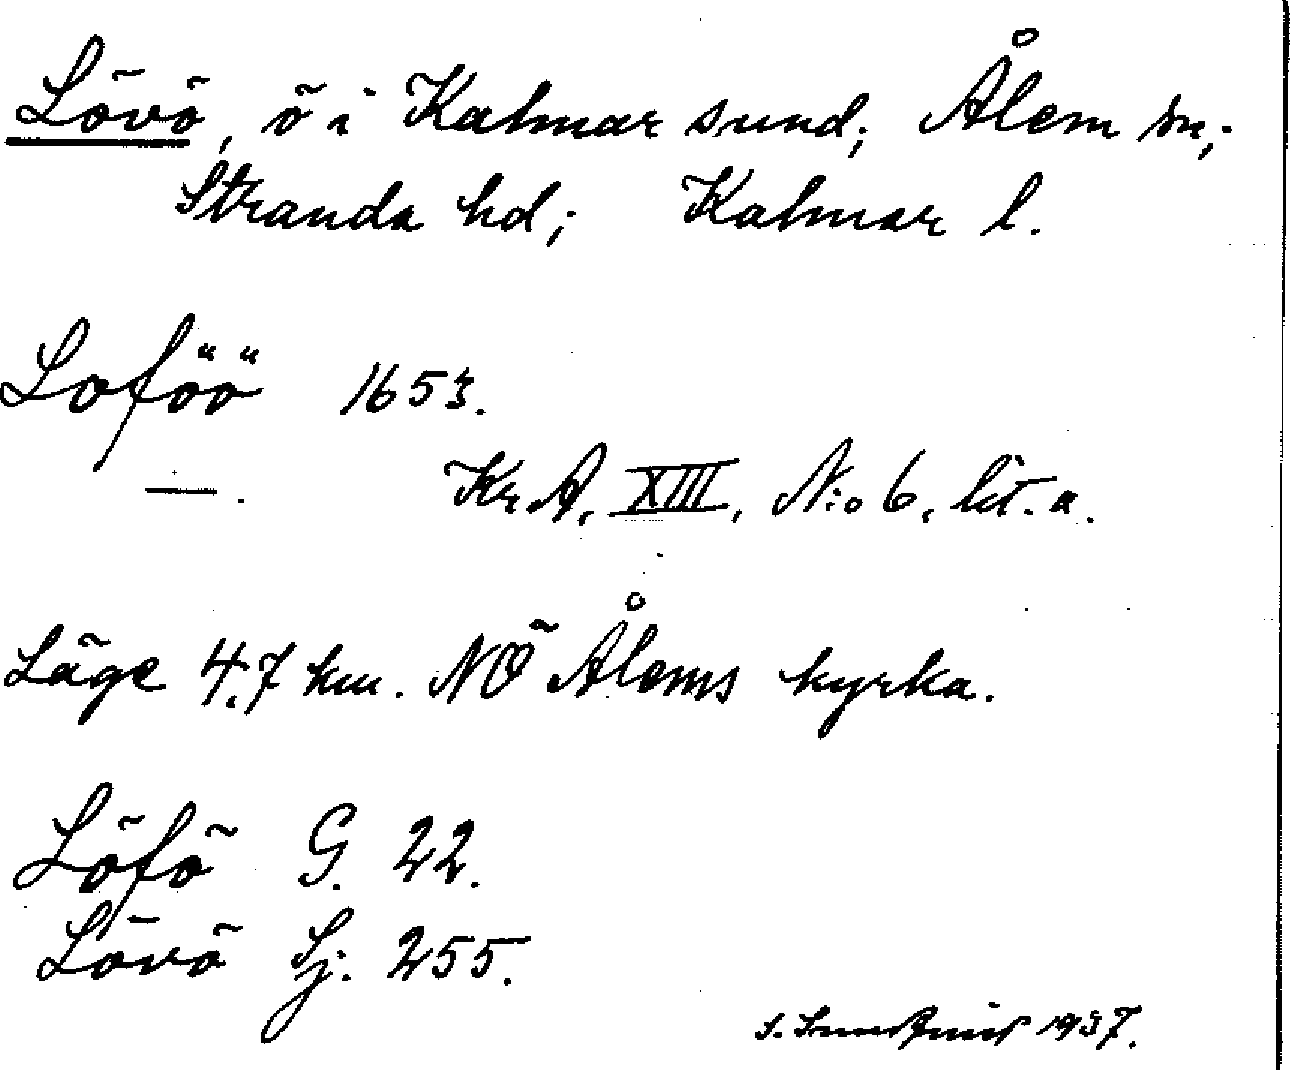 Lövö, ö i Kalmar sund; Ålem sn;
Stranda hd; Kalmar l.
Loföö 1653.
— . Kr. A. XIII, N:o 6. lit. a.
Läge 4,7 km. NÖ Ålems kyrka.
Löfö G. 22.
Lövö Sj. 255.
S. 1937.